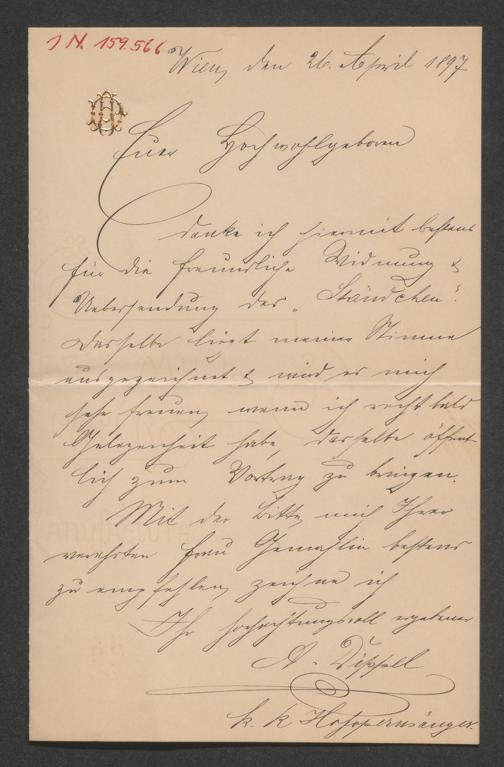 I N. 159.566
Wien, den 26. April 1897
Euer Hochwohlgeboren
danke ich hiermit bestens
für die freundliche Widmung &
Uebersendung des „Ständchen“.
Dasselbe liegt meiner Stimme
ausgezeichnet & wird es mich
sehr freuen, wenn ich recht bald
Gelegenheit habe dasselbe öffent-
lich zum Vortrag zu bringen.
Mit der Bitte, mich Ihrer
verehrten Frau Gemahlin bestens
zu empfehlen, zeichne ich
Ihr hochachtungsvoll ergebener
A. Dippel
k. k. Hofopernsänger.